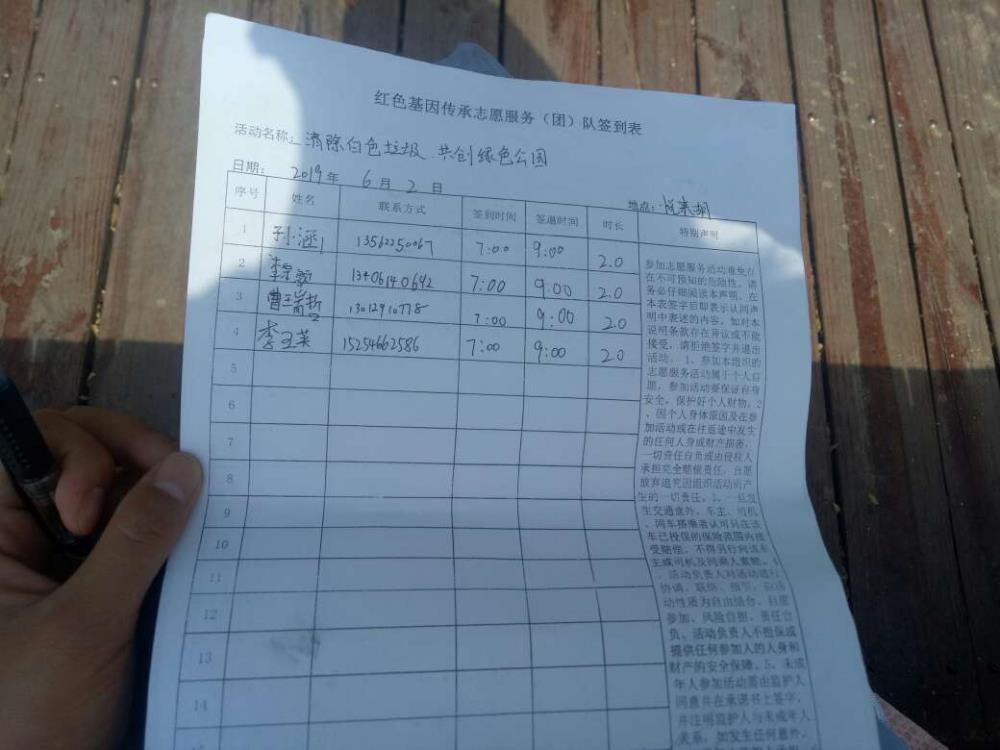 红色基因传承志愿服务（团）队签到表
活动名称：清除白色垃圾 共创绿色公园
日期： 2019年 6月 2日
地点：
序号 姓名 联系方式 签到时间 签退时间 时长 特别声明
1 孙涵 13562250067 7:00 9:00 2.0
2 13406140692 7:00 9:00 2.0
3 曹瑞哲 13012910778 7:00 9:00 2.0
4 李玉英 15254662586 7:00 9:00 2.0
5
6
7
8
9
10
11
12
13
14
参加志愿服务活动难免存
在不可预知的危险性，请
务必仔细阅读本声明。在
本表签字后即表示认同声
明中表述的内容，如对本
说明条款存在异议或不能
接受，请拒绝签字并退出
活动。1、参加本组织的
志愿服务活动属于个人自
愿，参加活动要保证自身
安全，保护好个人财物。2
、因个人身体原因及在参
加活动或在往返途中发生
的任何人身或财产损害，
一切责任自负或由侵权人
承担完全赔偿责任，自愿
放弃追究因组织活动所产
生的一切责任。3、一旦发
生交通意外，车主、司机
、同车搭乘者认可只在该
车已投保的保险范围内接
受赔偿，不得另行向该车
主或司机及同乘人索赔。4
、活动负责人对活动进行
协调、联络、指导，
动性质为自由结合、自愿
参加、风险自担、责任自
负。活动负责人不担保或
提供任何参加人的人身和
财产的安全保障。5、未成
年人参加活动需由监护人
同意并在承诺书上签字，
并注明监护人与未成年人
关系，如发生任何意外，